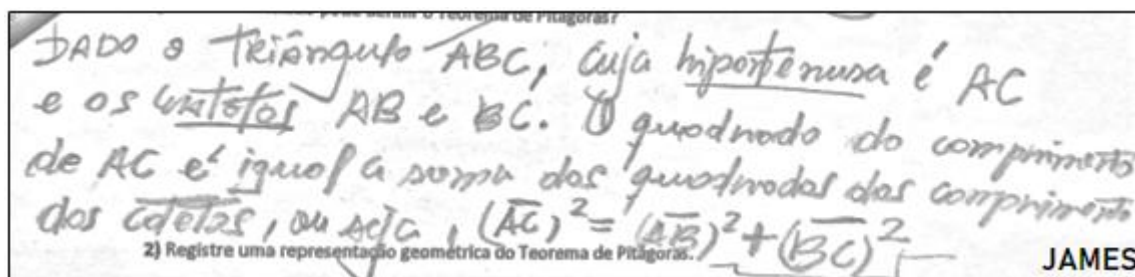 Teorema de Pitágoras?
DADO o Triângulo ABC, cuja hipotenusa é AC
e os catetos AB e BC. O quadrado do comprimento
de AC é igual a soma dos quadrados dos comprimento
dos catetos, ou seja, (AC)² = (AB)² + (BC)²
2) Registre uma representação geométrica do Teorema de Pitágoras.
JAMES